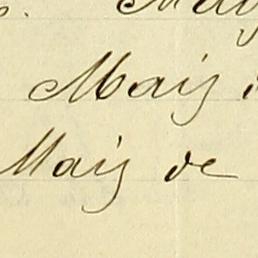 Maiz
Maiz de